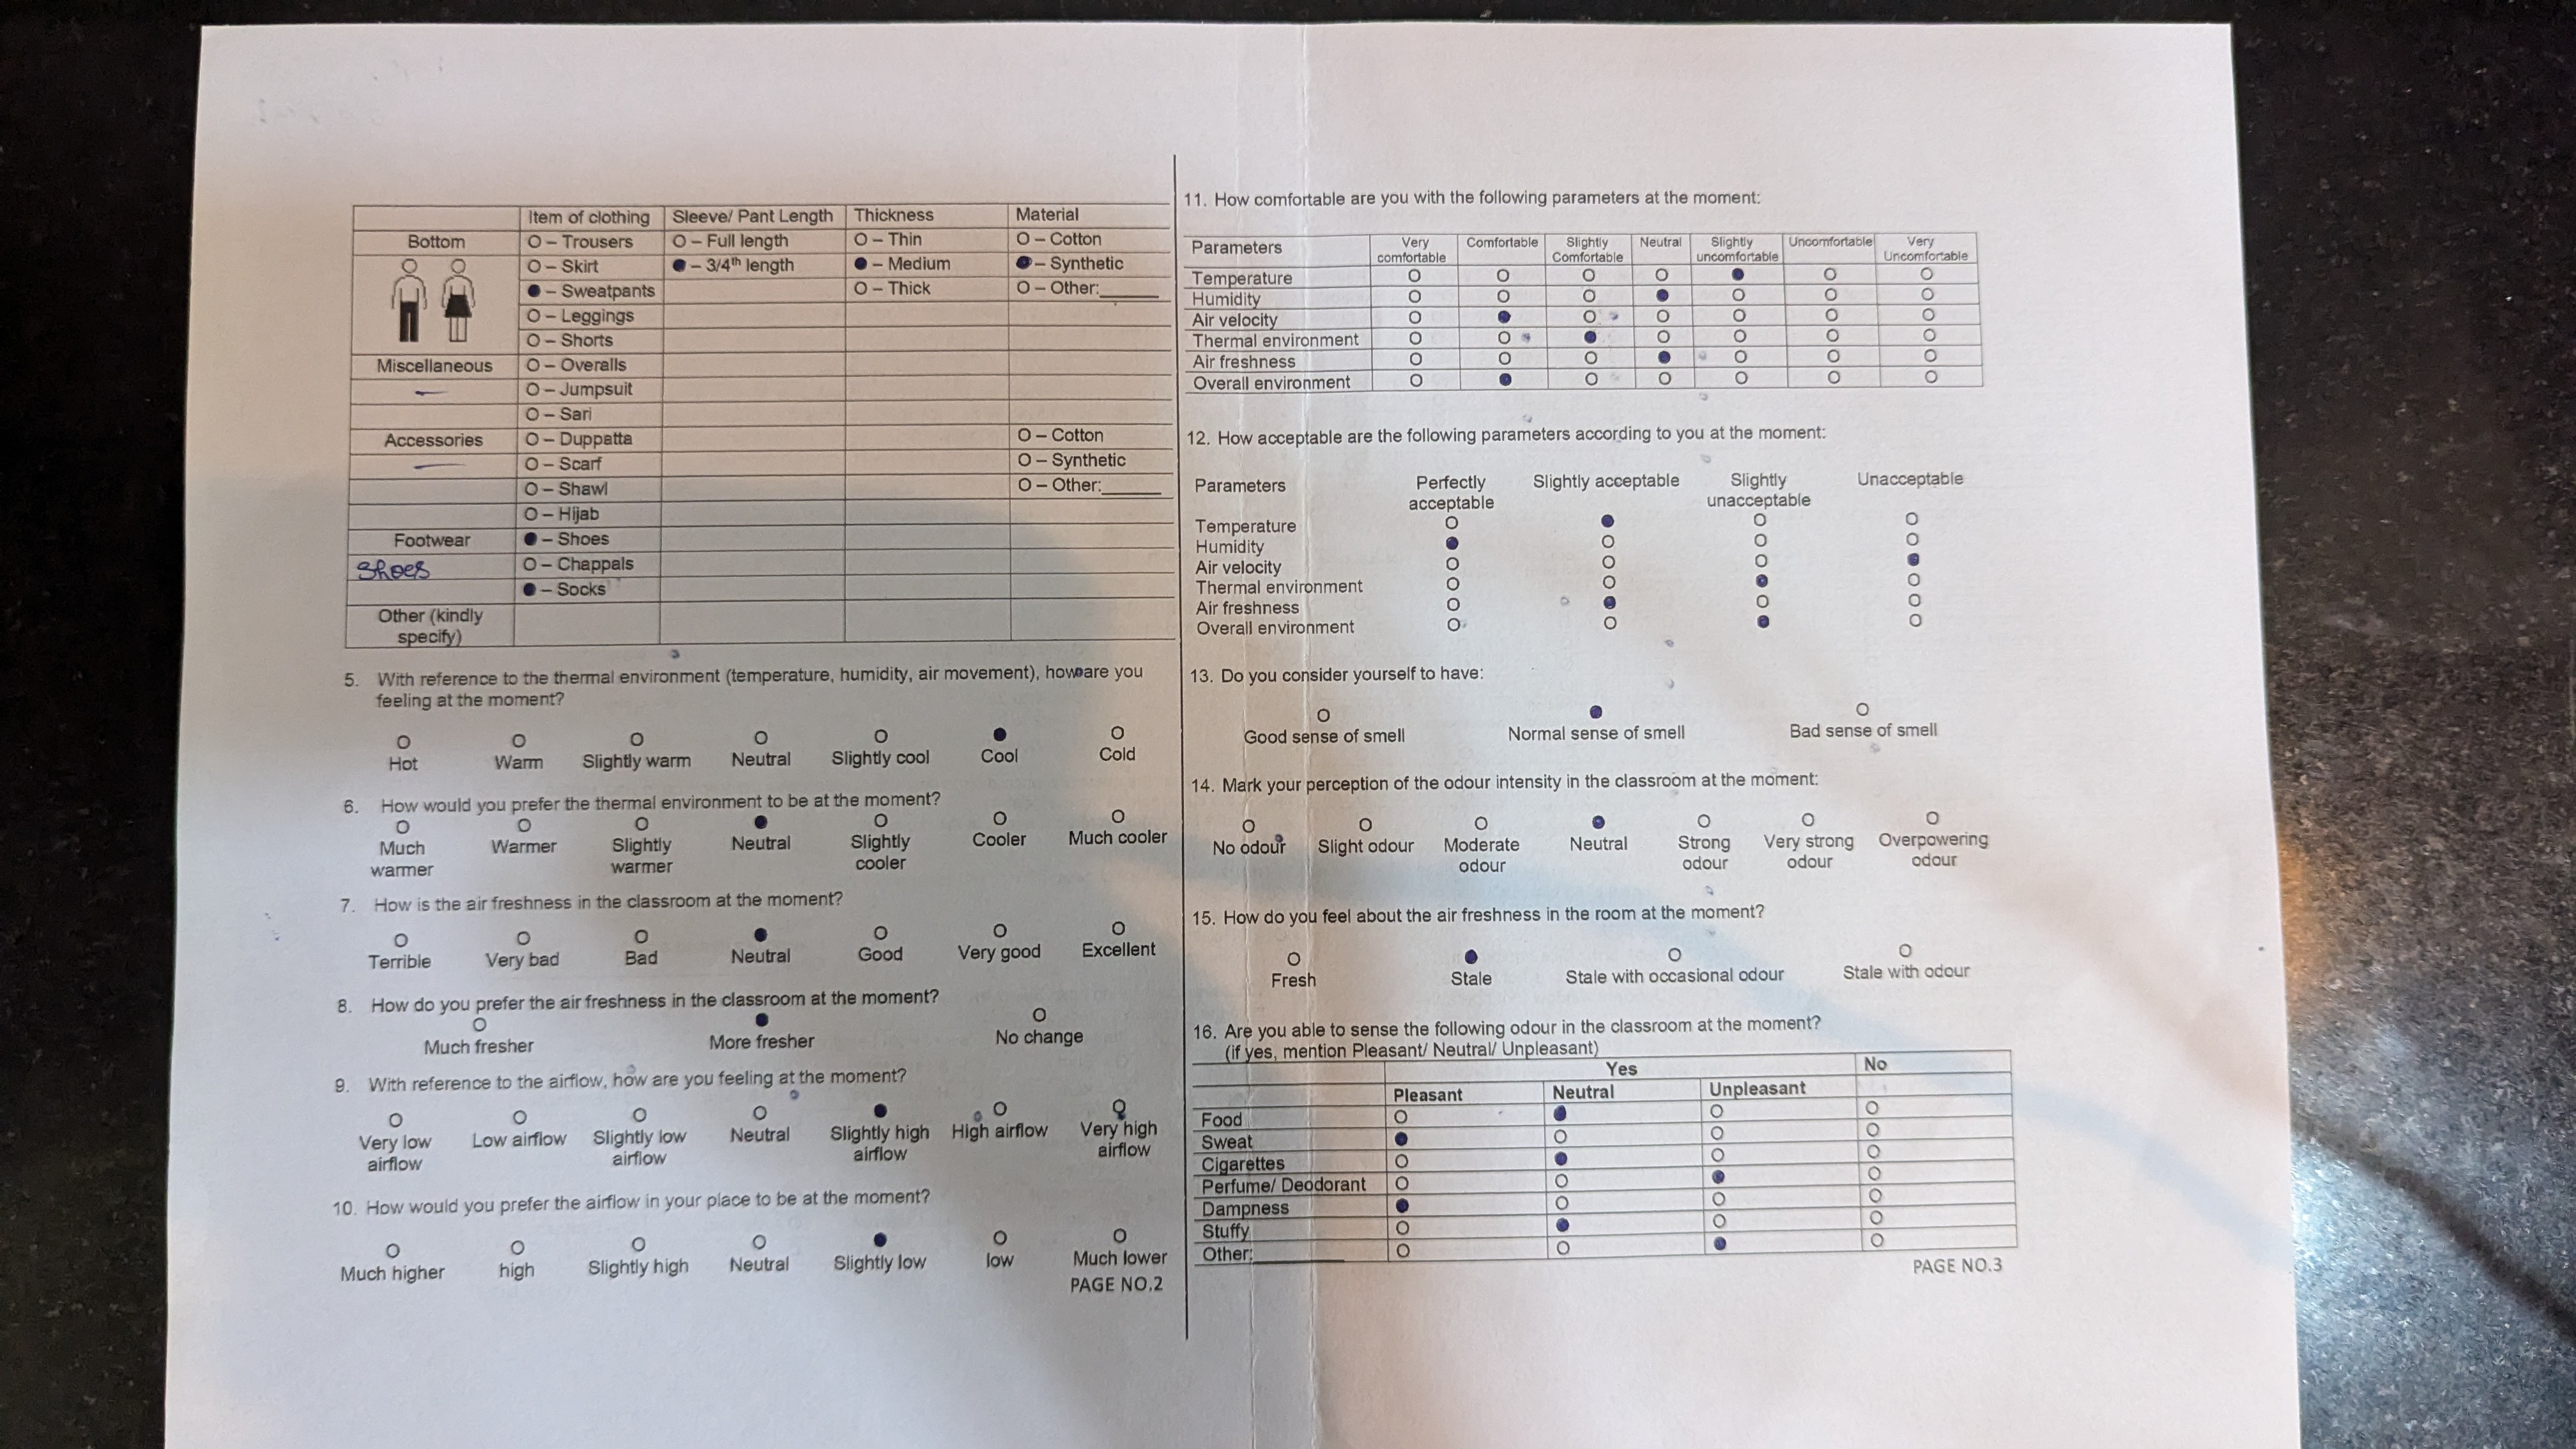 Item of clothing Sleeve/ Pant Length Thickness Material
Bottom O – Trousers O – Full length O – Thin O – Cotton
O – Skirt ● – 3/4th length ● – Medium ● – Synthetic
● – Sweatpants O – Thick O – Other:______
O – Leggings
O – Shorts
Miscellaneous O – Overalls
O – Jumpsuit
O – Sari
Accessories O – Duppatta O – Cotton
O – Scarf O – Synthetic
O – Shawl O – Other:______
O – Hijab
Footwear ● – Shoes
Shoes O – Chappals
● – Socks
Other (kindly
specify)
5. With reference to the thermal environment (temperature, humidity, air movement), how are you
feeling at the moment?
O O O O O ● O
Hot Warm Slightly warm Neutral Slightly cool Cool Cold
6. How would you prefer the thermal environment to be at the moment?
O O O ● O O O
Much Warmer Slightly Neutral Slightly Cooler Much cooler
warmer warmer cooler
7. How is the air freshness in the classroom at the moment?
O O O ● O O O
Terrible Very bad Bad Neutral Good Very good Excellent
8. How do you prefer the air freshness in the classroom at the moment?
O ● O
Much fresher More fresher No change
9. With reference to the airflow, how are you feeling at the moment?
O O O O ● O O
Very low Low airflow Slightly low Neutral Slightly high High airflow Very high
airflow airflow airflow airflow
10. How would you prefer the airflow in your place to be at the moment?
O O O O ● O O
Much higher high Slightly high Neutral Slightly low low Much lower
PAGE NO.2
11. How comfortable are you with the following parameters at the moment:
Parameters Very Comfortable Slightly Neutral Slightly Uncomfortable Very
comfortable Comfortable uncomfortable Uncomfortable
Temperature O O O O ● O O
Humidity O O O ● O O O
Air velocity O ● O O O O O
Thermal environment O O ● O O O O
Air freshness O O O ● O O O
Overall environment O ● O O O O O
12. How acceptable are the following parameters according to you at the moment:
Parameters Perfectly Slightly acceptable Slightly Unacceptable
acceptable unacceptable
Temperature O ● O O
Humidity ● O O O
Air velocity O O O ●
Thermal environment O O ● O
Air freshness O ● O O
Overall environment O O ● O
13. Do you consider yourself to have:
O ● O
Good sense of smell Normal sense of smell Bad sense of smell
14. Mark your perception of the odour intensity in the classroom at the moment:
O O O ● O O O
No odour Slight odour Moderate Neutral Strong Very strong Overpowering
odour odour odour odour
15. How do you feel about the air freshness in the room at the moment?
O ● O O
Fresh Stale Stale with occasional odour Stale with odour
16. Are you able to sense the following odour in the classroom at the moment?
(if yes, mention Pleasant/ Neutral/ Unpleasant)
Yes No
Pleasant Neutral Unpleasant
Food O ● O O
Sweat ● O O O
Cigarettes O ● O O
Perfume/ Deodorant O O ● O
Dampness ● O O O
Stuffy O ● O O
Other:__________ O O ● O
PAGE NO.3